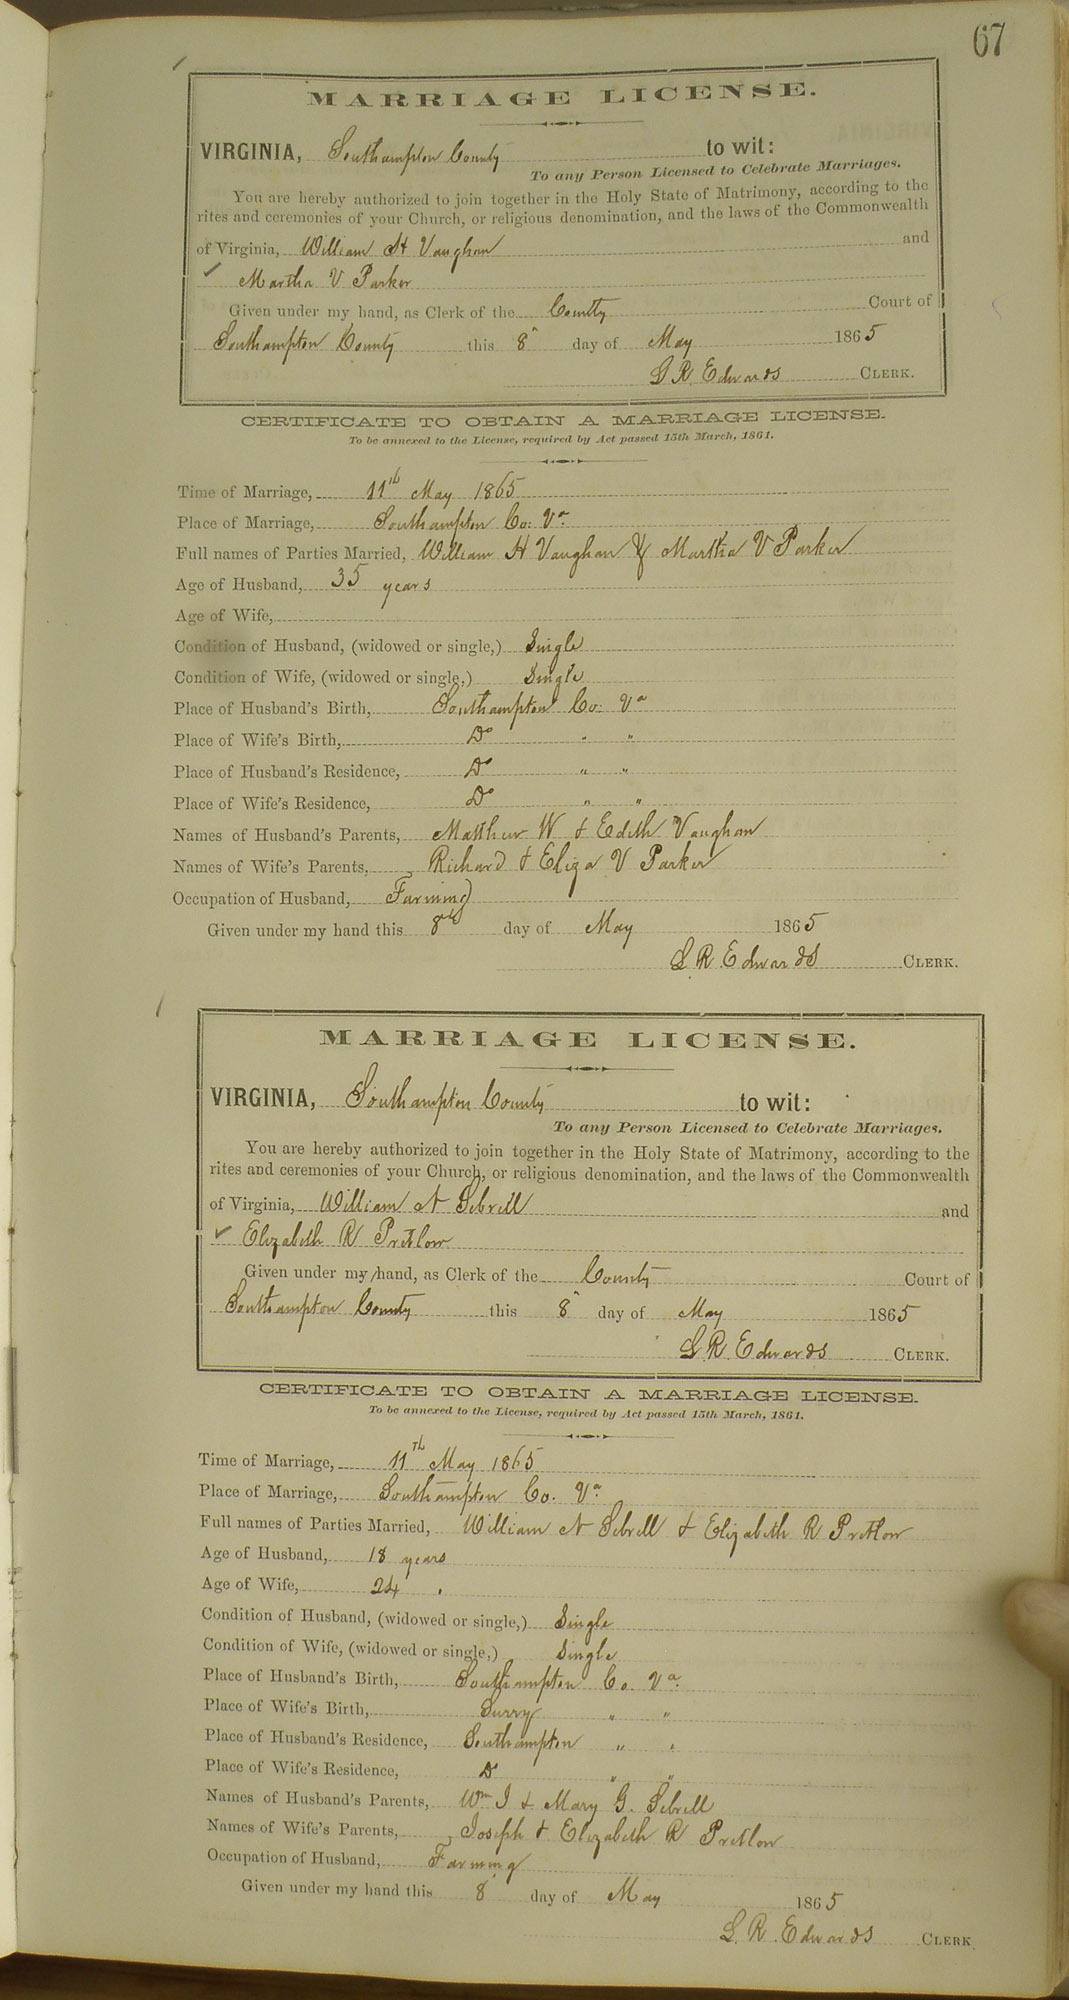 67
MARRIAGE LICENSE.
VIRGINIA, Southampton County to wit:
To any Person Licensed to Celebrate Marriages.
You are hereby authorized to join together in the Holy State of Matrimony, according to the
rites and ceremonies of your Church, or religious denomination, and the laws of the Commonwealth
of Virginia, William H Vaughan and
Martha V Parker
Given under my hand, as Clerk of the County Court of
Southampton County this 8" day of May 1865
L R Edwards CLERK.
CERTIFICATE TO OBTAIN A MARRIAGE LICENSE.
To be annexed to the License, required by Act passed 15th March, 1861.
Time of Marriage, 11th May 1865
Place of Marriage, Southampton Co: Va
Full names of Parties Married, William H Vaughan & Martha V Parker
Age of Husband, 35 years
Age of Wife,
Condition of Husband, (widowed or single,) Single
Condition of Wife, (widowed or single,) Single
Place of Husband's Birth, Southampton Co: Va
Place of Wife's Birth, Do " "
Place of Husband's Residence, Do " "
Place of Wife's Residence, Do " "
Names of Husband's Parents, Matthew W & Edith Vaughan
Names of Wife's Parents, Richard & Eliza V Parker
Occupation of Husband, Farming
Given under my hand this 8th day of May 1865
L R Edwards CLERK.
MARRIAGE LICENSE.
VIRGINIA, Southampton County to wit:
To any Person Licensed to Celebrate Marriages.
You are hereby authorized to join together in the Holy State of Matrimony, according to the
rites and ceremonies of your Church, or religious denomination, and the laws of the Commonwealth
of Virginia, William N Sebrell and
Elizabeth R Pretlow
Given under my hand, as Clerk of the County Court of
Southampton County this 8" day of May 1865
L R. Edwards CLERK.
CERTIFICATE TO OBTAIN A MARRIAGE LICENSE.
To be annexed to the License, required by Act passed 15th March, 1861.
Time of Marriage, 11th May 1865
Place of Marriage, Southampton Co. Va
Full names of Parties Married, William N Sebrell & Elizabeth R Pretlow
Age of Husband, 18 years
Age of Wife, 24 "
Condition of Husband, (widowed or single,) Single
Condition of Wife, (widowed or single,) Single
Place of Husband's Birth, Southampton Co. Va
Place of Wife's Birth, Surry " "
Place of Husband's Residence, Southampton " "
Place of Wife's Residence, Do " "
Names of Husband's Parents, Wm J & Mary G. Sebrell
Names of Wife's Parents, Joseph & Elizabeth R Pretlow
Occupation of Husband, Farming
Given under my hand this 8 day of May 1865
L. R. Edwards CLERK